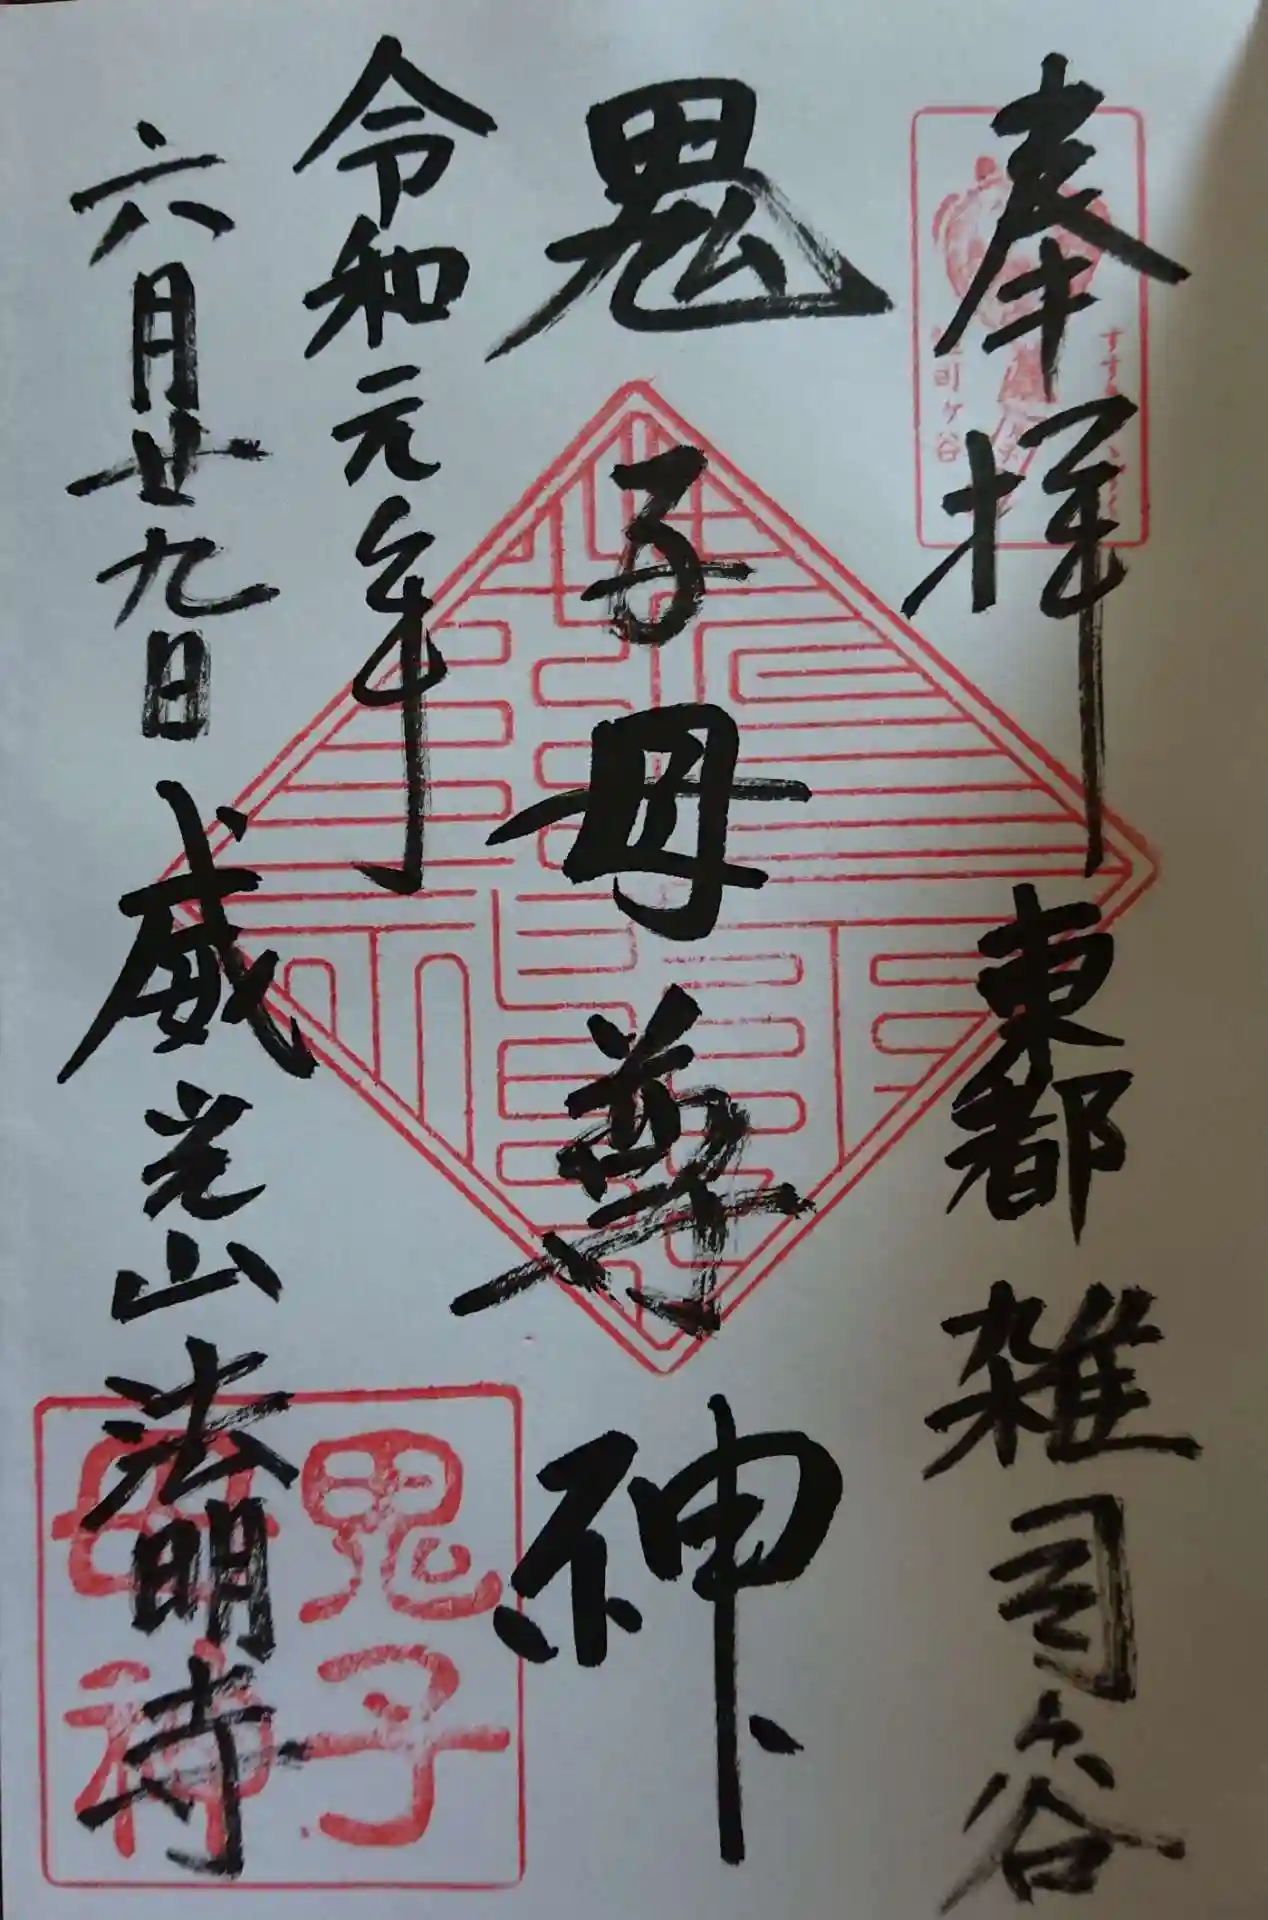 奉拝 東都 雑司ヶ谷
鬼子母尊神
令和元年
六月廿九日 威光山 法明寺
鬼子
母神